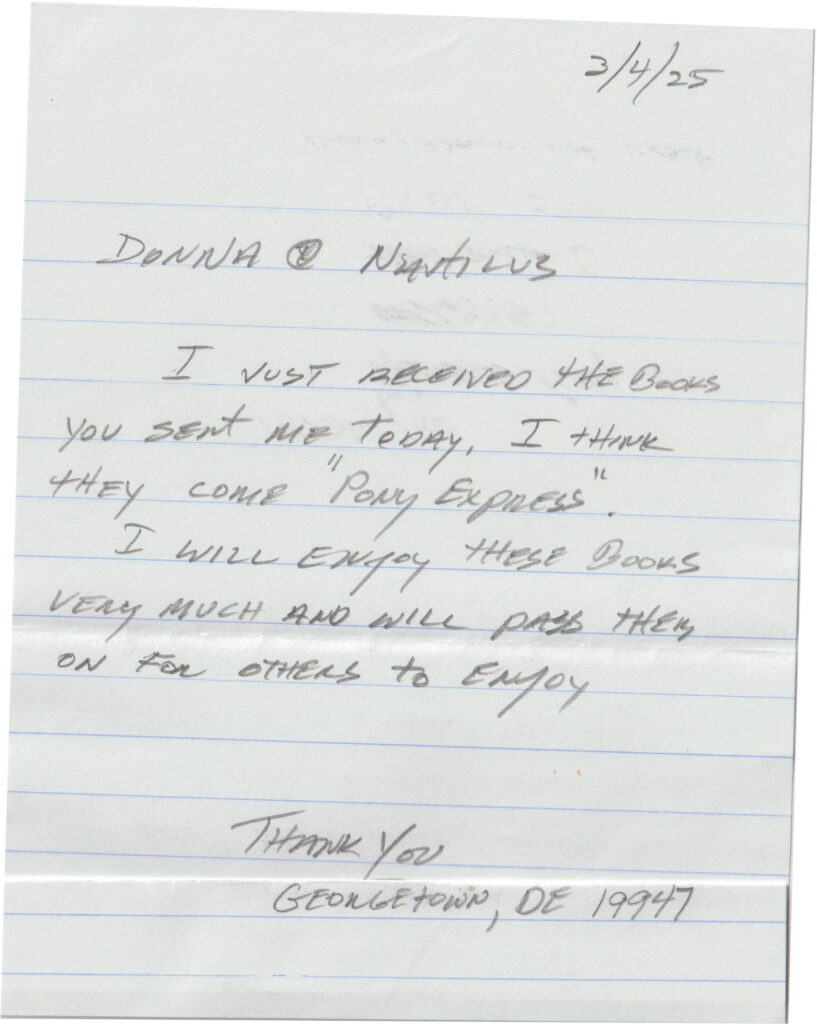 3/4/25
DONNA @ NAUTILUS
I JUST RECEIVED THE BOOKS
YOU SENT ME TODAY, I THINK
THEY COME "PONY EXPRESS".
I WILL ENJOY THESE BOOKS
VERY MUCH AND WILL PASS THEM
ON FOR OTHERS TO ENJOY
THANK YOU
GEORGETOWN, DE 19947